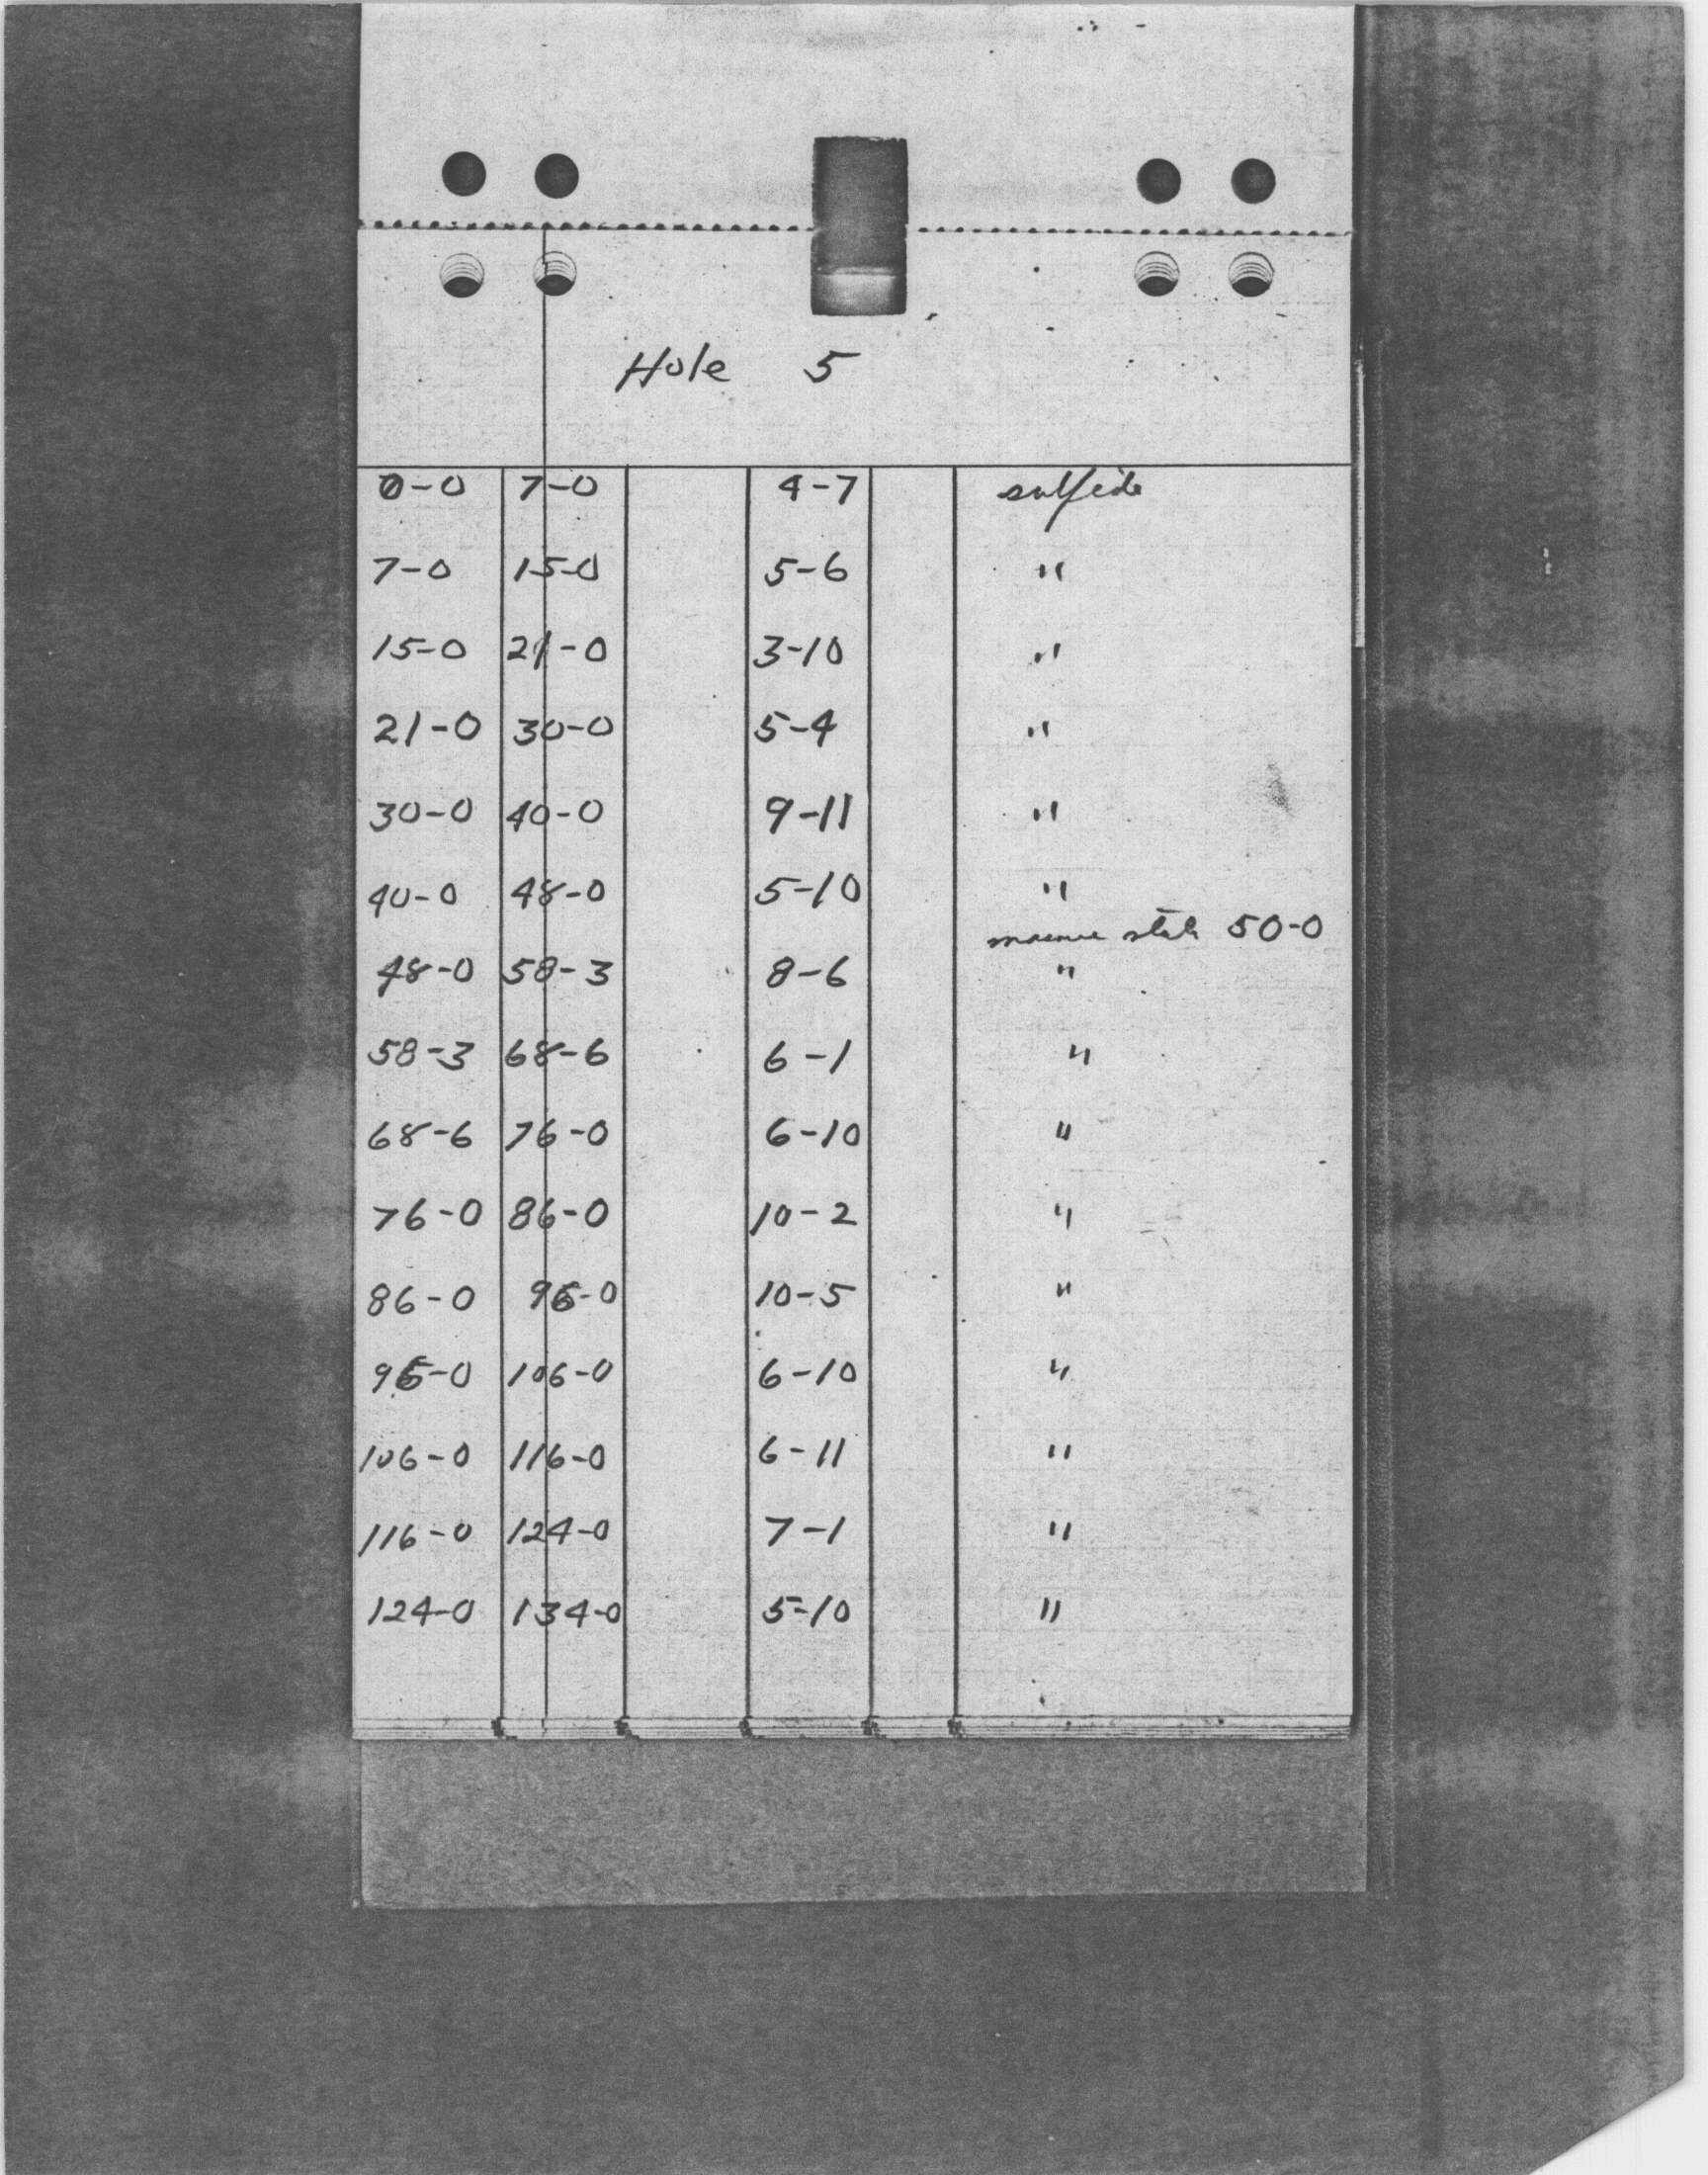 Hole 5
0-0 7-0 4-7 sulfide
7-0 15-0 5-6 "
15-0 21-0 3-10 "
21-0 30-0 5-4 "
30-0 40-0 9-11 "
40-0 48-0 5-10 "
50-0
48-0 58-3 8-6 "
58-3 68-6 6-1 "
68-6 76-0 6-10 "
76-0 86-0 10-2 "
86-0 96-0 10-5 "
96-0 106-0 6-10 "
106-0 116-0 6-11 "
116-0 124-0 7-1 "
124-0 134-0 5-10 "